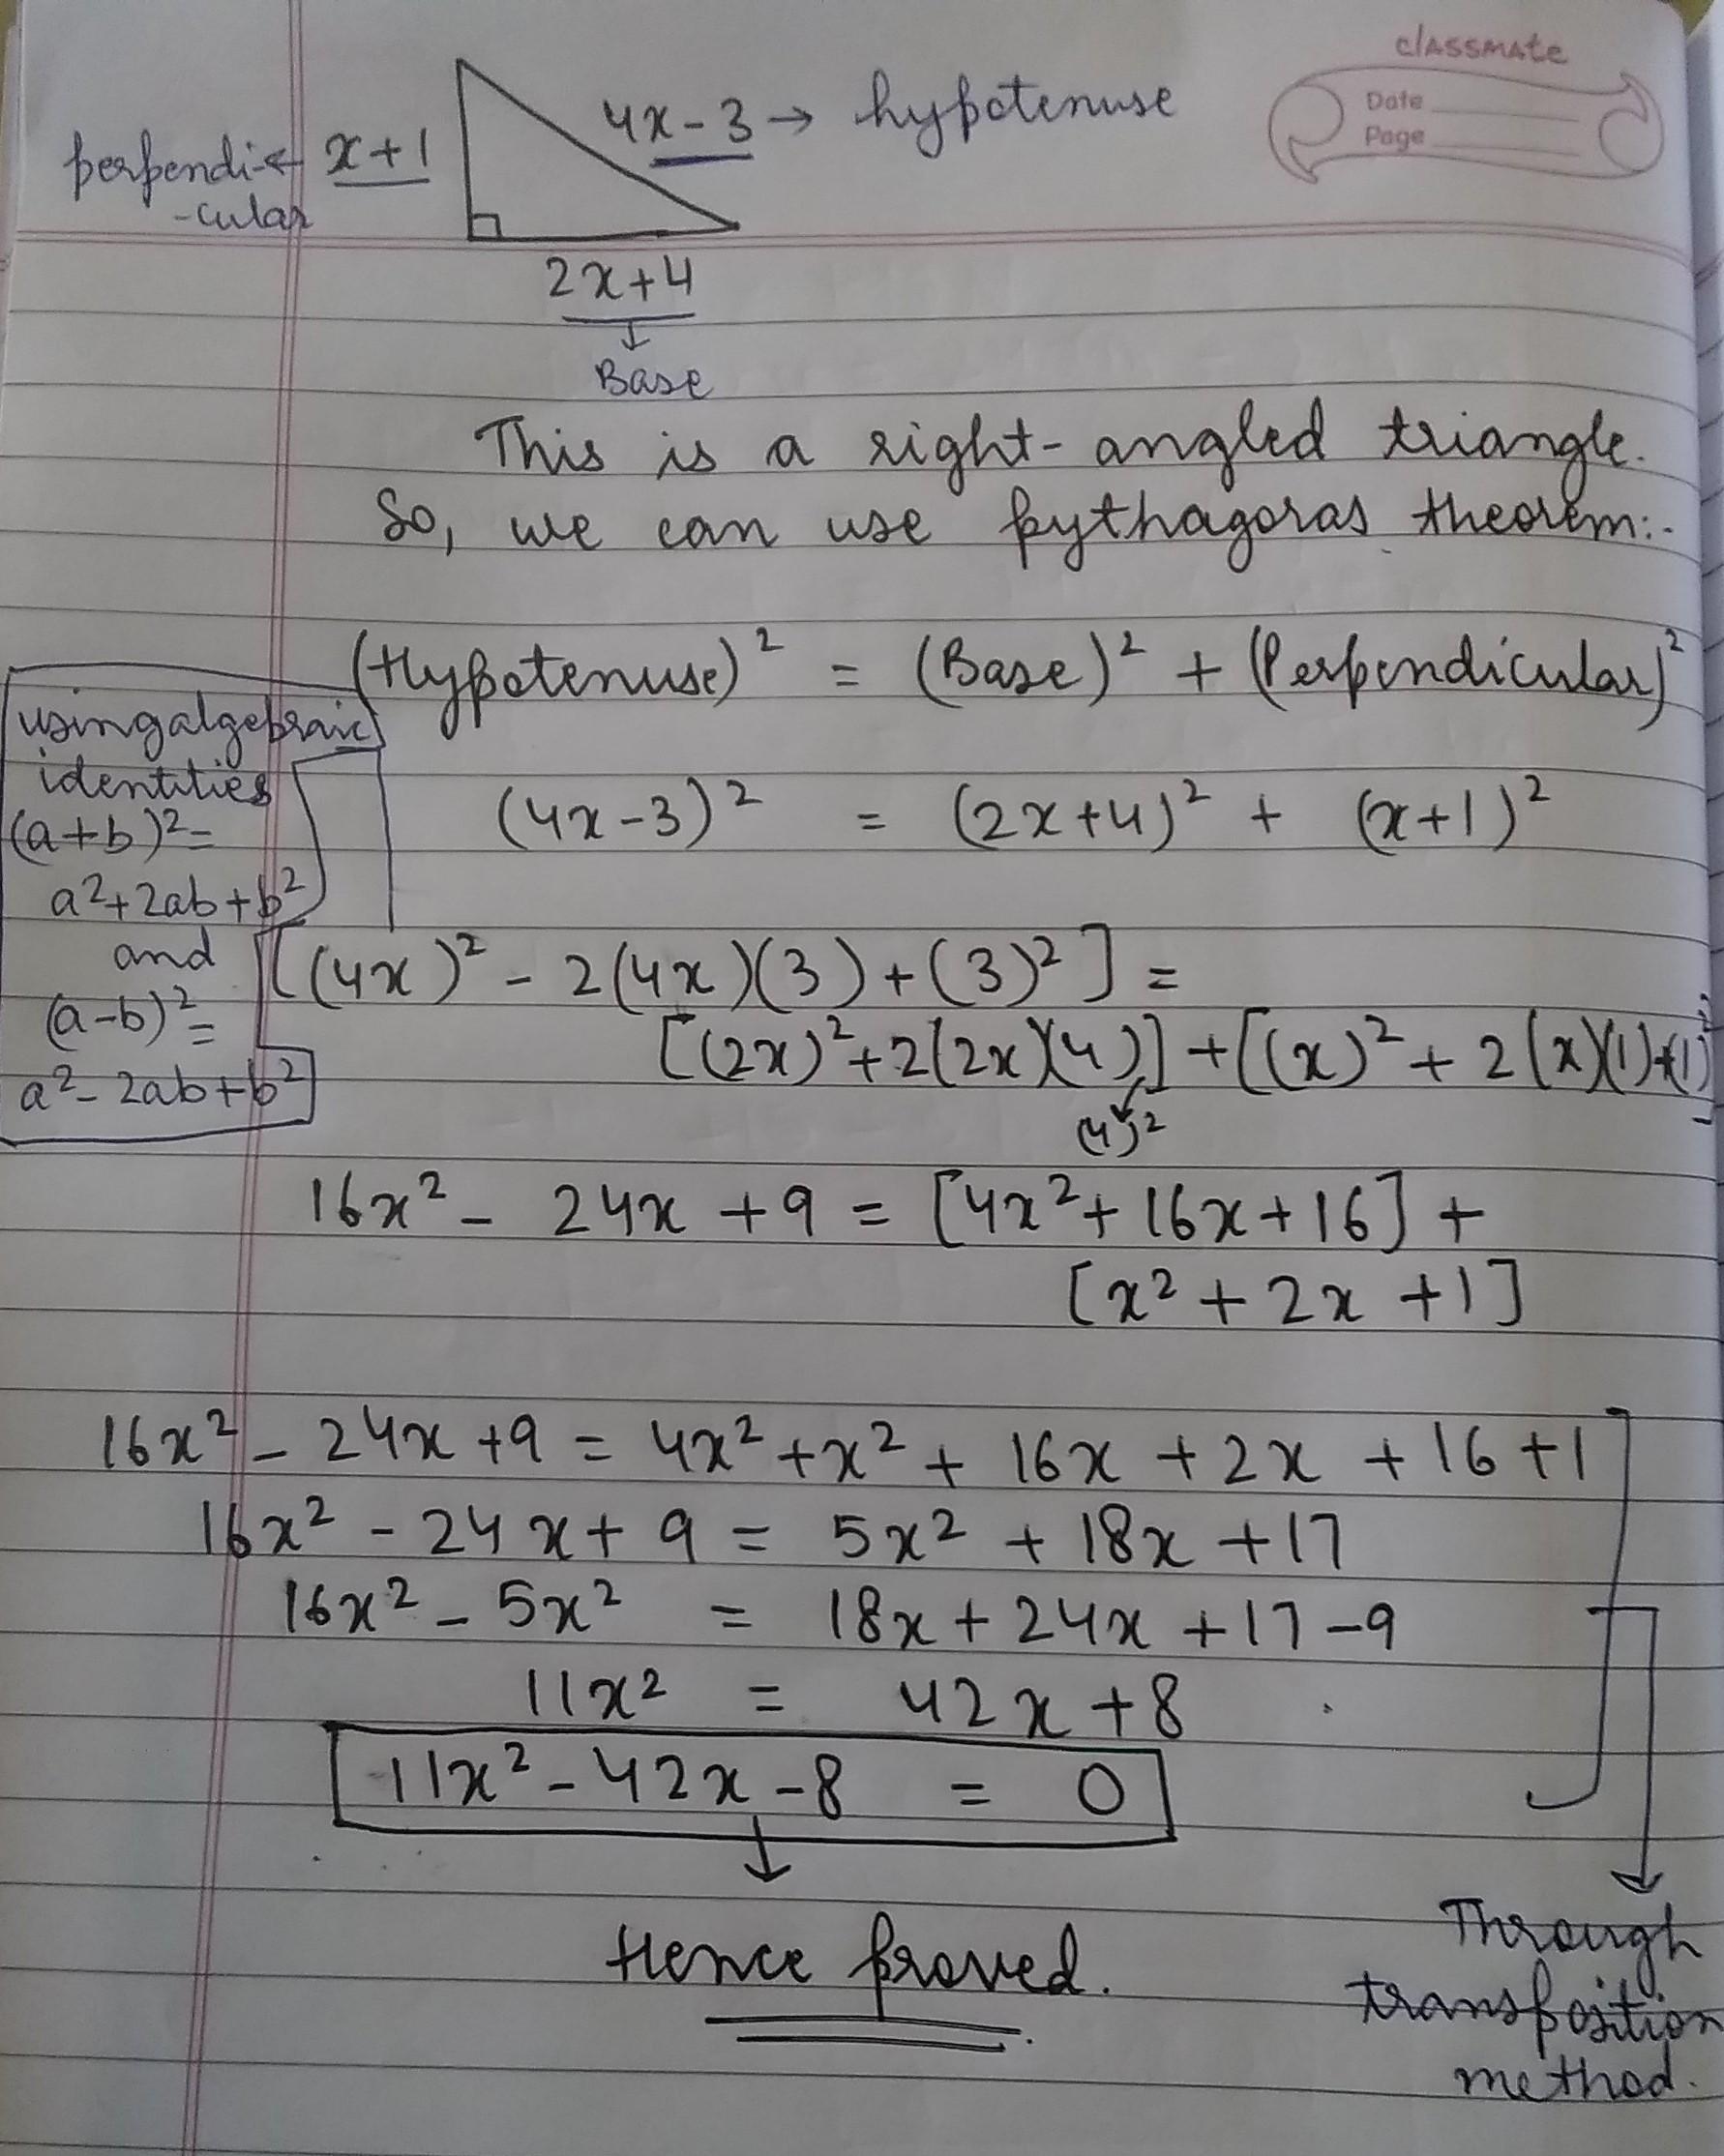 classmate
Date
Page
4x-3 → hypotenuse
perpendi- ← x+1
-cular
2x+4
Base
This is a right-angled triangle.
So, we can use pythagoras theorem:-
(Hypotenuse)² = (Base)² + (Perpendicular)²
using algebraic
identities
(a+b)²=
a²+2ab+b²
and
(a-b)²=
a²-2ab+b²
(4x-3)² = (2x+4)² + (x+1)²
[(4x)² - 2(4x)(3)+(3)²] =
[(2x)²+2(2x)(4)]+[(x)²+2(x)(1)+(1)²]
(4)²
16x² - 24x +9 = [4x²+16x+16] +
[x²+2x+1]
16x² - 24x +9 = 4x²+x² + 16x + 2x + 16 +1
16x² - 24x + 9 = 5x² + 18x +17
16x² - 5x² = 18x + 24x +17-9
11x² = 42x +8
11x² - 42x - 8 = 0
Hence proved.
Through
transposition
method.